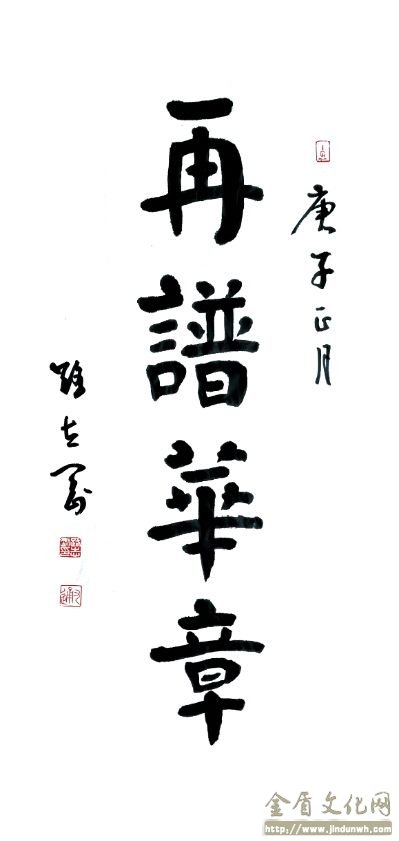 庚子正月
再譜華章
金盾文化网
http://www.jindunwh.com